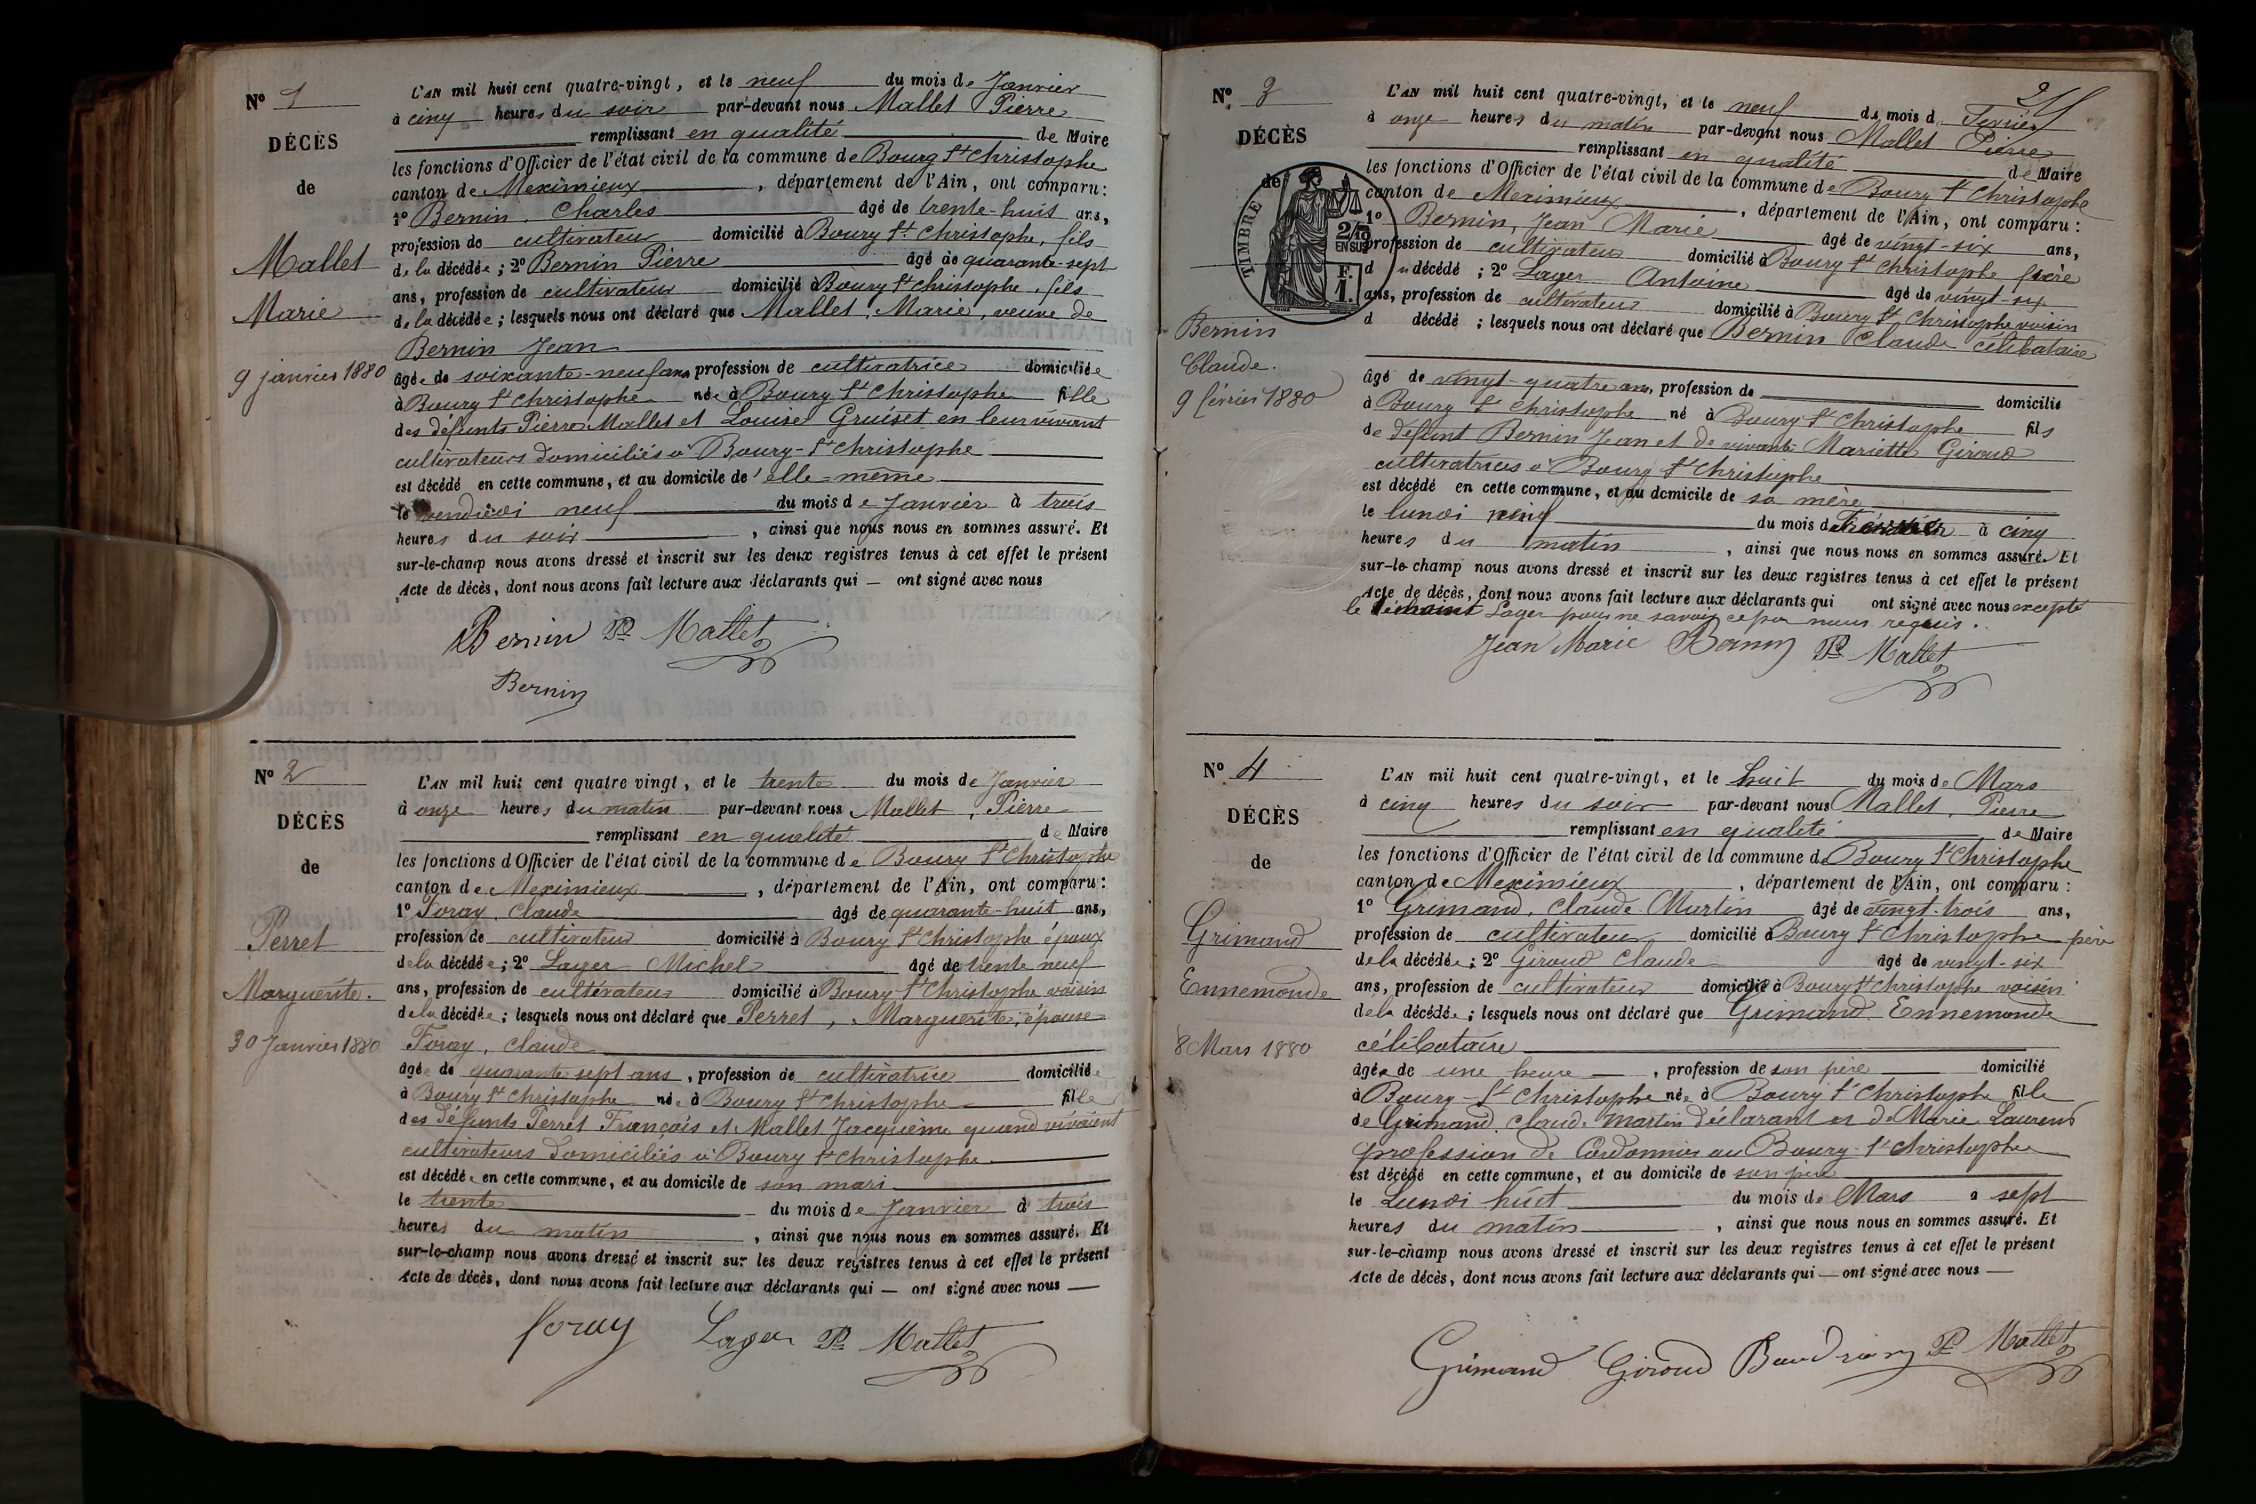 Nº 1
DÉCÈS
de
Mallet
Marie
9 janvier 1880
L'AN mil huit cent quatre-vingt, et le neuf du mois de Janvier
à cinq heures du soir par-devant nous Mallet Pierre
remplissant en qualité de Maire
les fonctions d'Officier de l'état civil de la commune de Bourg St Christophe
canton de Meximieux, département de l'Ain, ont comparu:
1º Bernin, Charles âgé de trente-huit ans,
profession de cultivateur domicilié à Bourg St Christophe, fils
de la décédée; 2º Bernin Pierre âgé de quarante-sept
ans, profession de cultivateur domicilié à Bourg St Christophe, fils
de la décédée; lesquels nous ont déclaré que Mallet, Marie, veuve de
Bernin Jean
âgée de soixante-neuf ans profession de cultivatrice domiciliée
à Bourg St Christophe née à Bourg St Christophe fille
des défunts Pierre Mallet et Louise Gruiset en leur vivant
cultivateurs domiciliés à Bourg-St Christophe
est décédé en cette commune, et au domicile de elle-même
le vendredi neuf du mois de Janvier à trois
heures du soir, ainsi que nous nous en sommes assuré. Et
sur-le-champ nous avons dressé et inscrit sur les deux registres tenus à cet effet le présent
Acte de décès, dont nous avons fait lecture aux déclarants qui — ont signé avec nous
Bernin Pre Mallet
Bernin
Nº 2
DÉCÈS
de
Perret
Marguerite.
30 Janvier 1880
L'AN mil huit cent quatre vingt, et le trente du mois de Janvier
à onze heures du matin par-devant nous Mallet, Pierre
remplissant en qualité de Maire
les fonctions d'Officier de l'état civil de la commune de Bourg St Christophe
canton de Meximieux, département de l'Ain, ont comparu:
1º Foray, Claude âgé de quarante-huit ans,
profession de cultivateur domicilié à Bourg St Christophe époux
de la décédée; 2º Layer Michel âgé de trente neuf
ans, profession de cultivateur domicilié à Bourg St Christophe voisin
de la décédée; lesquels nous ont déclaré que Perret, Marguerite, épouse
Foray, Claude
âgée de quarante sept ans, profession de cultivatrice domiciliée
à Bourg St Christophe née à Bourg St Christophe fille
des défunts Perret François et Mallet Jacqueme quand vivaient
cultivateurs domiciliés à Bourg St Christophe
est décédée en cette commune, et au domicile de son mari
le trente du mois de Janvier à trois
heures du matin, ainsi que nous nous en sommes assuré. Et
sur-le-champ nous avons dressé et inscrit sur les deux registres tenus à cet effet le présent
Acte de décès, dont nous avons fait lecture aux déclarants qui — ont signé avec nous —
foray Layer Pre Mallet
Nº 3
DÉCÈS
de
TIMBRE
2/10
EN SUS
F.
1.
Bernin
Claude.
9 février 1880
L'AN mil huit cent quatre-vingt, et le neuf du mois de Fevrier
à onze heures du matin par-devant nous Mallet Pierre
remplissant en qualité de Maire
les fonctions d'Officier de l'état civil de la commune de Bourg St Christophe
canton de Meximieux, département de l'Ain, ont comparu:
1º Bernin, Jean Marie âgé de vingt-six ans,
profession de cultivateur domicilié à Bourg St Christophe frère
du décédé; 2º Layer Antoine âgé de vingt-six
ans, profession de cultivateur domicilié à Bourg St Christophe voisin
d décédé; lesquels nous ont déclaré que Bernin Claude célibataire
âgé de vingt-quatre ans, profession de domicilié
à Bourg St Christophe né à Bourg St Christophe fils
de défunt Bernin Jean et de vivante Mariette Giroud
cultivatrices à Bourg St Christophe
est décédé en cette commune, et au domicile de sa mère
le lundi neuf du mois de Février à cinq
heures du matin, ainsi que nous nous en sommes assuré. Et
sur-le-champ nous avons dressé et inscrit sur les deux registres tenus à cet effet le présent
Acte de décès, dont nous avons fait lecture aux déclarants qui ont signé avec nous excepté
le témoint Layer pour ne savoir ce par nous requis.
Jean Marie Bernin Pre Mallet
Nº 4
DÉCÈS
de
Grimand
Ennemonde
8 Mars 1880
L'AN mil huit cent quatre-vingt, et le huit du mois de Mars
à cinq heures du soir par-devant nous Mallet, Pierre
remplissant en qualité de Maire
les fonctions d'Officier de l'état civil de la commune de Bourg St Christophe
canton de Meximieux, département de l'Ain, ont comparu:
1º Grimand, Claude Martin âgé de vingt-trois ans,
profession de cultivateur domicilié à Bourg St Christophe père
de la décédée; 2º Giroud Claude âgé de vingt-six
ans, profession de cultivateur domicilié à Bourg St Christophe voisin
de la décédée; lesquels nous ont déclaré que Grimand Ennemonde
célibataire
âgée de une heure, profession de son père domicilié
à Bourg-St Christophe née à Bourg St Christophe fille
de Grimand, Claude Martin déclarant et de Marie Laurens
profession de Cordonnier au Bourg-St Christophe
est décédé en cette commune, et au domicile de son père
le Lundi huit du mois de Mars à sept
heures du matin, ainsi que nous nous en sommes assuré. Et
sur-le-champ nous avons dressé et inscrit sur les deux registres tenus à cet effet le présent
Acte de décès, dont nous avons fait lecture aux déclarants qui — ont signé avec nous —
Grimand Giroud Pre Mallet